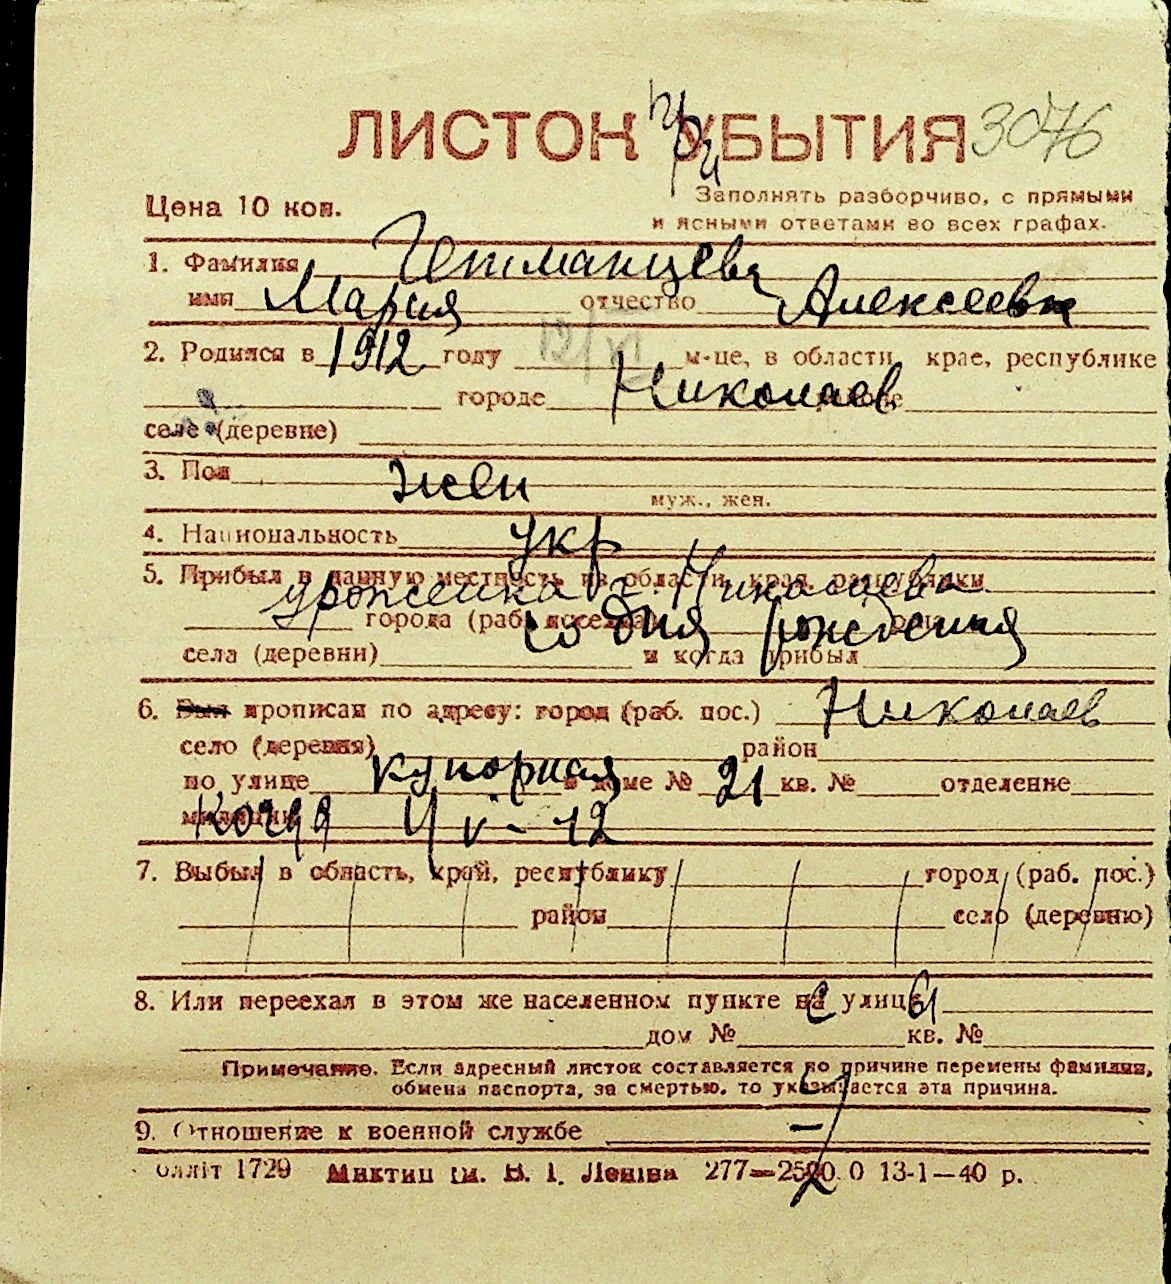 ЛИСТОК УБЫТИЯ 3076
При
Цена 10 коп.
Заполнять разборчиво, с прямыми
и ясными ответами во всех графах.
1. Фамилия Гетманцева
имя Мария отчество Алексеевна
2. Родился в 1912 году 12/VI м-це, в области, крае, республике
городе Николаев районе
селе (деревне)
3. Пол жен
муж., жен.
4. Национальность укр
5. Прибыл в данную местность из области, края, республики
уроженка г. Николаева
города (раб. поселка) со дня рождения
села (деревни) и когда прибыл
6. Был прописан по адресу: город (раб. пос.) Николаев
село (деревня) район
по улице купорная в доме № 21 кв. № отделение
милиции
7. Выбыл в область, край, республику город (раб. пос.)
район село (деревню)
8. Или переехал в этом же населенном пункте на улицу
дом № кв. №
Примечание. Если адресный листок составляется по причине перемены фамилии,
обмена паспорта, за смертью, то указывается эта причина.
9. Отношение к военной службе —
олліт 1729 Миктип ім. В. І. Леніна 13-1—40 р.